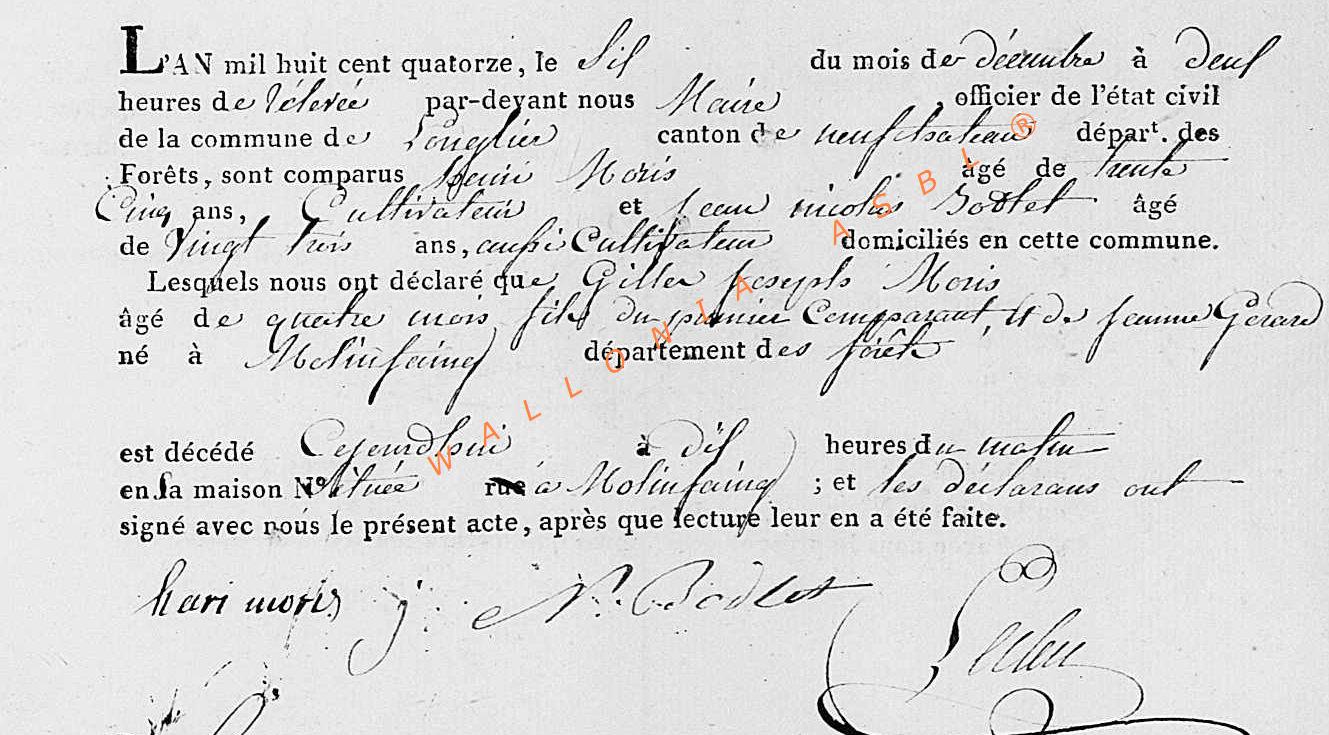 L'AN mil huit cent quatorze, le Six du mois de décembre à deux
heures de rélevée par-devant nous Maire officier de l'état civil
de la commune de Longlier canton de neufchateau départ. des
Forêts, sont comparus henri Moris âgé de trente
Cinq ans, Cultivateur et jean nicolas Bodlet âgé
de Vingt trois ans, aussi Cultivateur domiciliés en cette commune.
Lesquels nous ont déclaré que Gilles joseph Moris
âgé de quatre mois fils du premier Comparant, et de jeanne Gerard
né à Molinfaing département des forêts
est décédé Cejourdhui à dix heures du matin
en sa maison N.° située rue à Molinfaing ; et les déclarans ont
signé avec nous le présent acte, après que lecture leur en a été faite.
hari moris j. N. Bodlet
WALLONIA ASBL ®